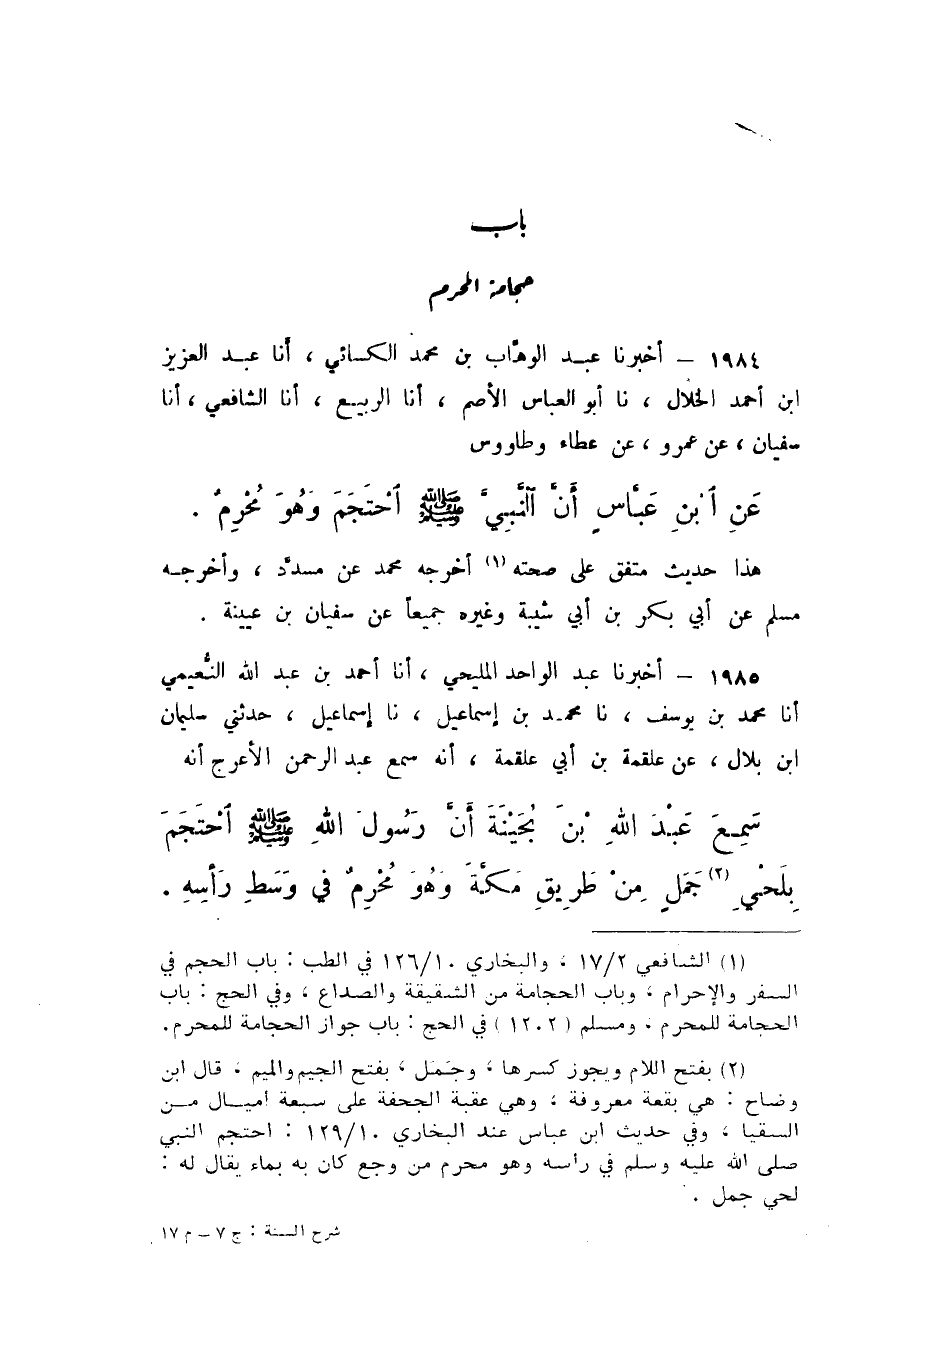 باب
حجامة المحرم
١٩٨٤ – أخبرنا عبد الوهّاب بن محمد الكسائي ، أنا عبد العزيز
ابن أحمد الخلال ، نا أبو العباس الأصم ، أنا الربيع ، أنا الشافعي ، أنا
سفيان ، عن عمرو ، عن عطاء وطاووس
عَنِ ٱبْنِ عَبَّاسٍ أَنَّ ٱلنَّبِيَّ ﷺ ٱحْتَجَمَ وَهُوَ مُحْرِمٌ .
هذا حديث متفق على صحته (١) أخرجه محمد عن مسدّد ، وأخرجه
مسلم عن أبي بكر بن أبي شيبة وغيره جميعاً عن سفيان بن عيينة .
١٩٨٥ – أخبرنا عبد الواحد المليحي ، أنا أحمد بن عبد الله النُّعيمي
أنا محمد بن يوسف ، نا محمد بن إسماعيل ، نا إسماعيل ، حدثني سليمان
ابن بلال ، عن علقمة بن أبي علقمة ، أنه سمع عبد الرحمن الأعرج أنه
سَمِعَ عَبْدَ اللهِ بْنَ بُحَيْنَةَ أَنَّ رَسُولَ اللهِ ﷺ ٱحْتَجَمَ
بِلَحْيِ (٢) جَمَلٍ مِنْ طَرِيقِ مَكَّةَ وَهُوَ مُحْرِمٌ في وَسَطِ رَأْسِهِ .
(١) الشافعي ١٧/٢ ، والبخاري ١٢٦/١٠ في الطب : باب الحجم في
السفر والإحرام ، وباب الحجامة من الشقيقة والصداع ، وفي الحج : باب
الحجامة للمحرم ، ومسلم ( ١٢٠٢ ) في الحج : باب جواز الحجامة للمحرم.
(٢) بفتح اللام ويجوز كسرها ، وجَمَل ، بفتح الجيم والميم ، قال ابن
وضاح : هي بقعة معروفة ، وهي عقبة الجحفة على سبعة أميال من
السقيا ، وفي حديث ابن عباس عند البخاري ١٢٩/١٠ : احتجم النبي
صلى الله عليه وسلم في رأسه وهو محرم من وجع كان به بماء يقال له :
لحي جمل .
شرح السنة : ج ٧ – م ١٧